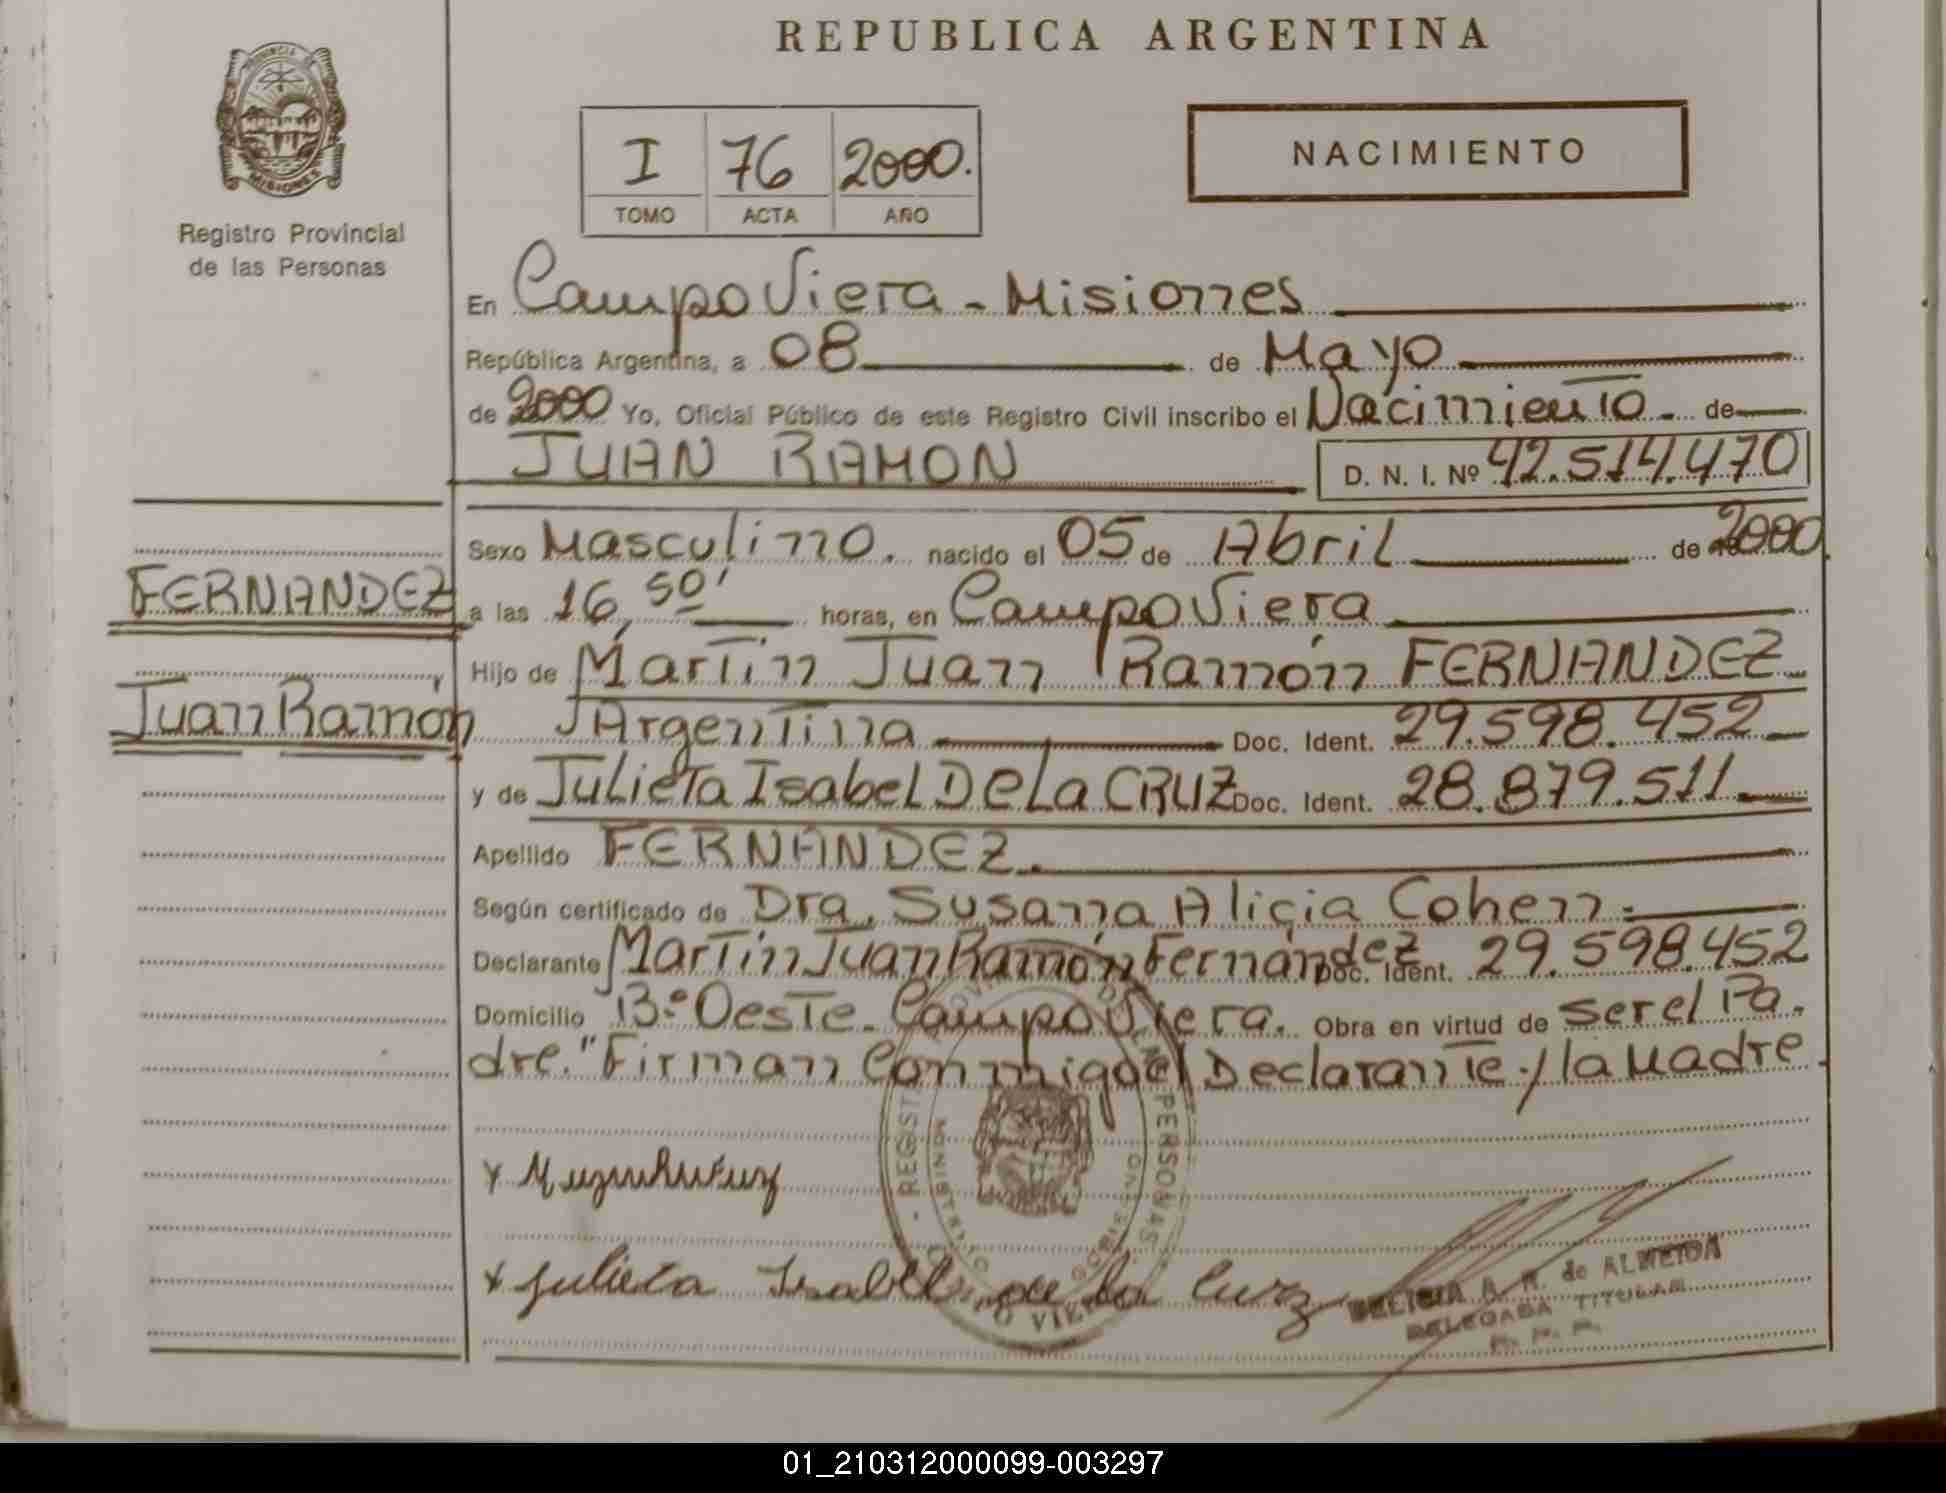 REPUBLICA ARGENTINA
PROVINCIA DE
MISIONES
Registro Provincial
de las Personas
I 76 2000.
TOMO ACTA AÑO
NACIMIENTO
En Campo Viera - Misiones
República Argentina, a 08 de Mayo
de 2000 Yo, Oficial Público de este Registro Civil inscribo el Nacimiento. de
JUAN RAMON D. N. I. Nº 42.514.470
Sexo Masculino. nacido el 05 de Abril de 2000.
FERNANDEZ
a las 16,50' horas, en Campo Viera
Hijo de Martín Juan Ramón FERNANDEZ
Juan Ramón
Argentina Doc. Ident. 29.598.452
y de Julieta Isabel De La CRUZ Doc. Ident. 28.879.511
Apellido FERNANDEZ.
Según certificado de Dra. Susana Alicia Cohen.
Declarante Martín Juan Ramón Fernández Doc. Ident. 29.598.452
Domicilio Bº Oeste. Campo Viera. Obra en virtud de ser el Pa.
dre." Firman Conmigo el Declarante y la Madre.
Julieta Isabel de la Cruz
DELICIA A. R. de ALMEIDA
DELEGADA TITULAR
R. P. P.
01_210312000099-003297